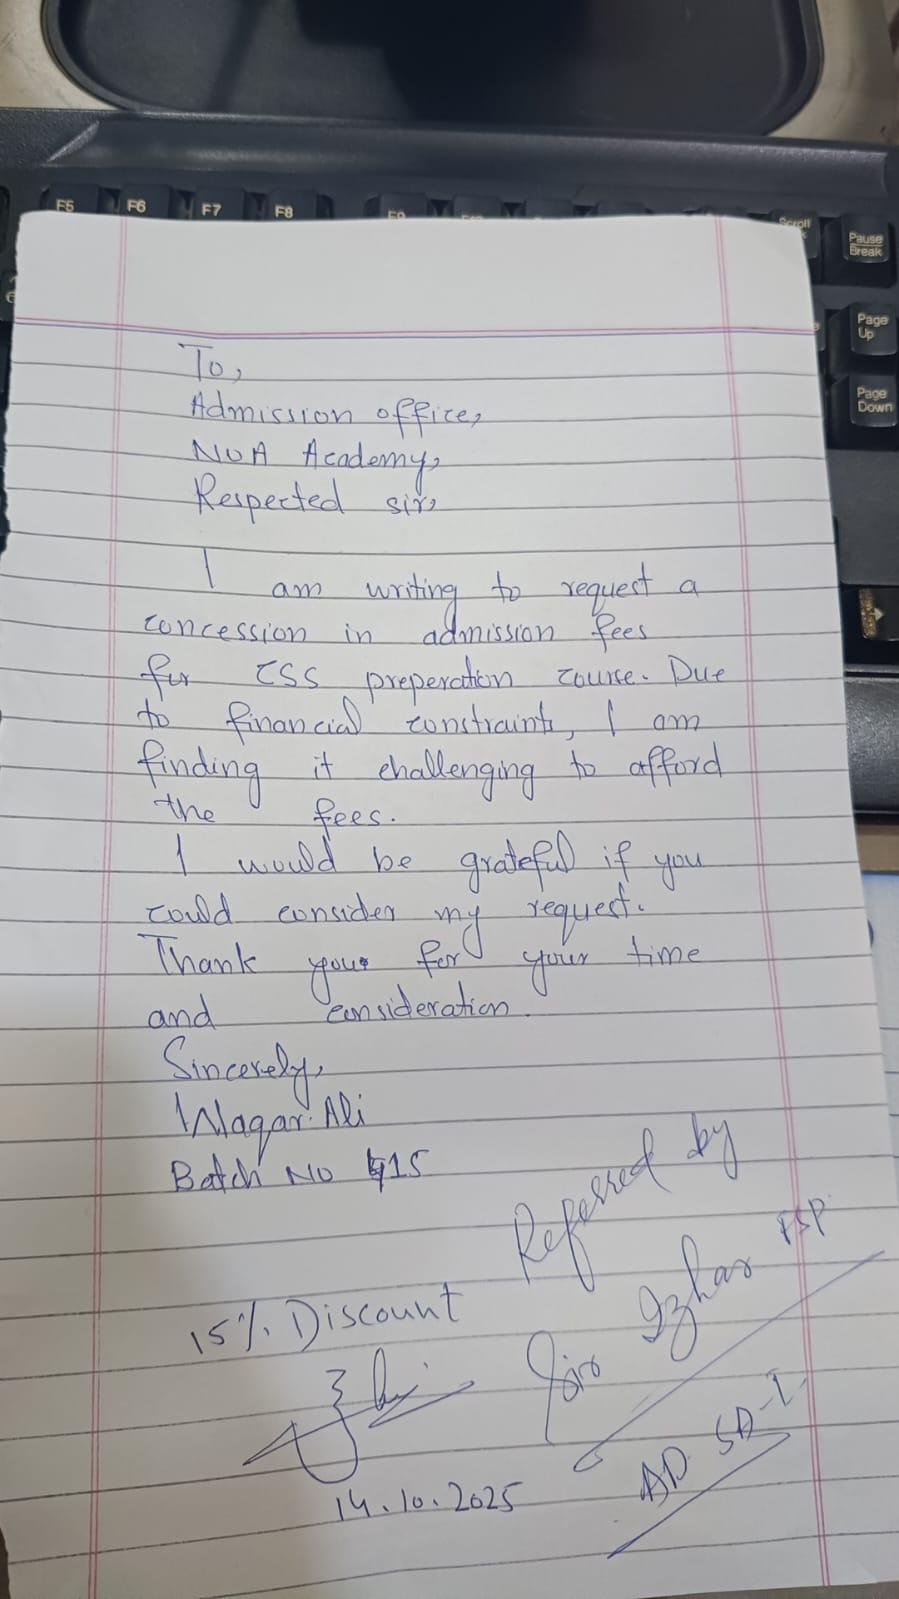 F5 F6 F7 F8 F9 Scroll Pause Break
Page Up
Page Down
To,
Admission office,
NOA Academy,
Respected sir,
I am writing to request a
concession in admission fees
for CSS preperation course. Due
to financial constraints, I am
finding it challenging to afford
the fees.
I would be grateful if you
could consider my request.
Thank you for your time
and consideration.
Sincerely,
Waqar Ali
Batch No 15
Referred by
Sir Izhar PSP
15% Discount
14.10.2025
AD SA-I